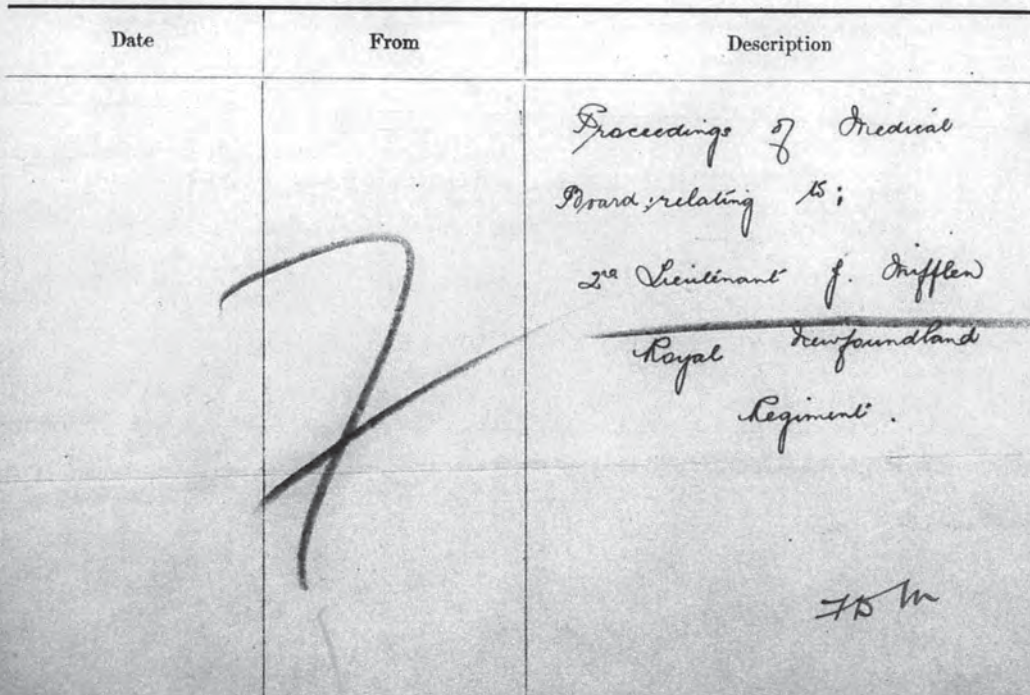 Date From Description
Proceedings of Medical
Board, relating to;
2nd Lieutenant J. Mifflen
Royal Newfoundland
Regiment.
7